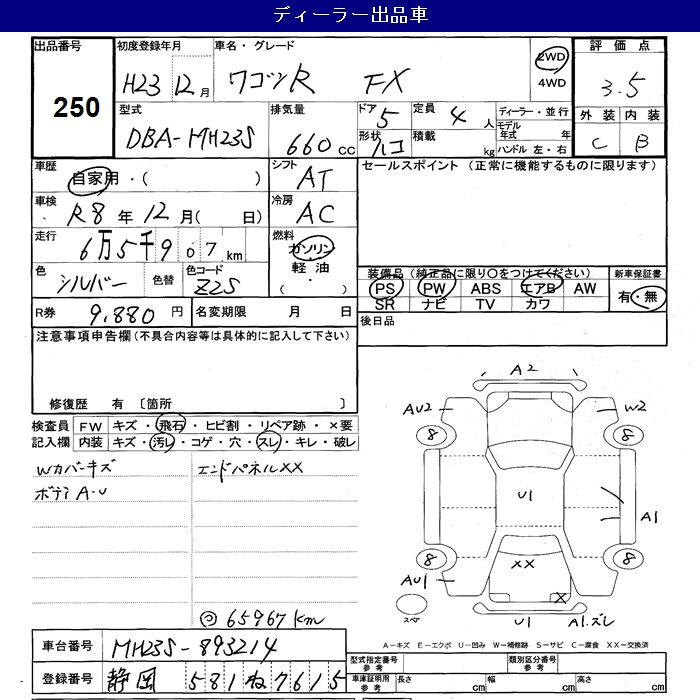 ディーラー出品車
出品番号 初度登録年月 車名・グレード 評価点
250 H23 12月 ワゴンR FX 2WD 4WD 3.5
型式 排気量 ドア 5 定員 4人 ディーラー・並行 外装 内装
DBA-MH23S 660cc 形状 ハコ 積載 kg モデル年式 年 ハンドル 左・右 C B
車歴 自家用・( ) シフト AT セールスポイント (正常に機能するものに限ります)
車検 R8年12月( 日) 冷房 AC
走行 6万5千907km 燃料 ガソリン 軽油 ( ・ )
色 シルバー 色替 色コード Z2S 装備品(純正品に限り○をつけてください) 新車保証書
PS PW ABS エアB AW 有・無
SR ナビ TV カワ
R券 9,880円 名変期限 月 日 後日品
注意事項申告欄(不具合内容等は具体的に記入して下さい)
修復歴 有 〔箇所 〕
検査員記入欄 FW キズ・飛石・ヒビ割・リペア跡・×要
内装 キズ・汚レ・コゲ・穴・スレ・キレ・破レ
Wカバーキズ エンドパネルXX
ボデーA-U
◎65967km
A2
AU2 W2
8 8
U1
A1
XX
8 8
AU1 X
スペア U1 A1.ズレ
A-キズ E-エクボ U-凹み W-補修跡 S-サビ C-腐食 XX-交換済
車台番号 MH23S-893214
型式指定番号 参考 類別区分番号 参考
登録番号 静岡 581 ね7615
車庫証明用 参考 長さ cm 幅 cm 高さ cm